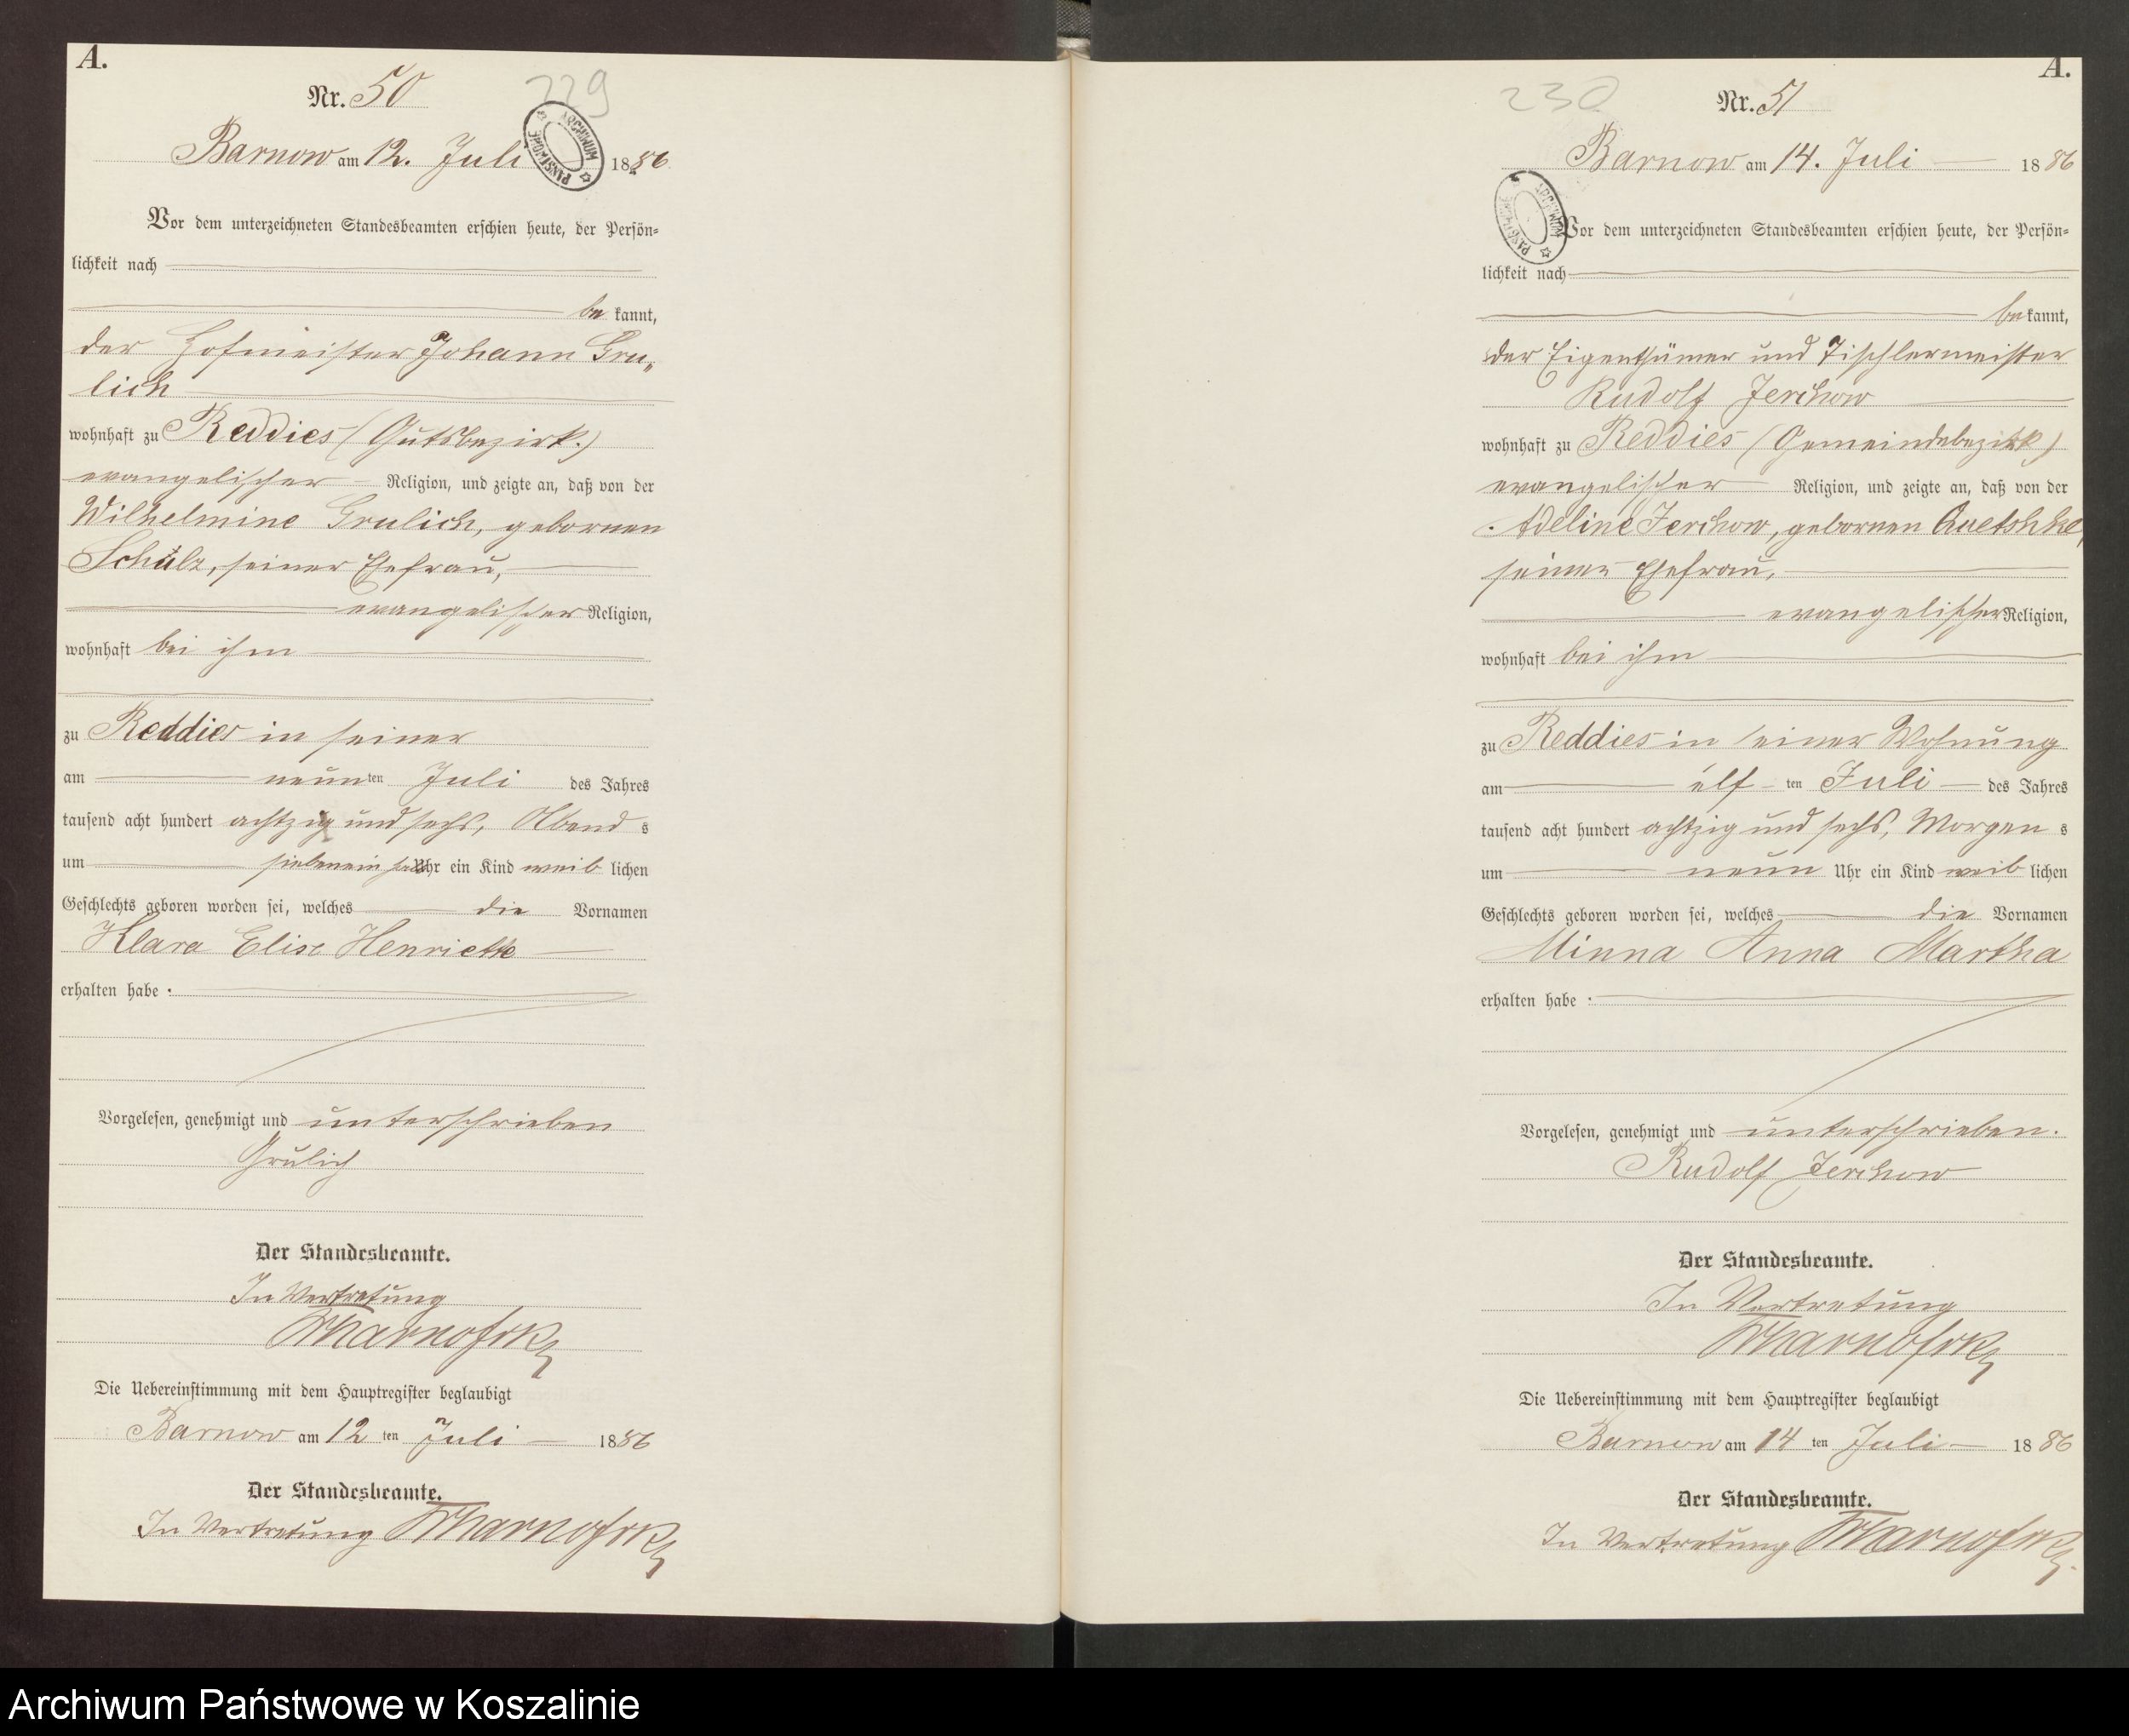 A.
Nr. 50
229
Barnow am 12. Juli 1886
Vor dem unterzeichneten Standesbeamten erschien heute, der Persön-
lichkeit nach
be kannt,
der Hofmeister Johann Gru„
lich
wohnhaft zu Reddies (Gutsbezirk.)
evangelischer Religion, und zeigte an, daß von der
Wilhelmine Grulich, gebornen
Schulz, seiner Ehefrau,
evangelischer Religion,
wohnhaft bei ihm
zu Reddies in seiner
am neun ten Juli des Jahres
tausend acht hundert achtzig und sechs, Abend s
um sieben ein halb Uhr ein Kind weib lichen
Geschlechts geboren worden sei, welches die Vornamen
Klara Elise Henriette
erhalten habe .
Vorgelesen, genehmigt und unterschrieben
Grulich
Der Standesbeamte.
In Vertretung
Die Uebereinstimmung mit dem Hauptregister beglaubigt
Barnow am 12 ten Juli 1886
Der Standesbeamte.
In Vertretung
A.
Nr. 51
230
Barnow am 14. Juli 1886
ARCHIWUM PAŃSTWOWE
Vor dem unterzeichneten Standesbeamten erschien heute, der Persön-
lichkeit nach
be kannt,
der Eigenthümer und Tischlermeister
Rudolf Jerchow
wohnhaft zu Reddies (Gemeindebezirk)
evangelischer Religion, und zeigte an, daß von der
Adeline Jerchow, gebornen
seiner Ehefrau,
evangelischer Religion,
wohnhaft bei ihm
zu Reddies in seiner Wohnung
am elf ten Juli des Jahres
tausend acht hundert achtzig und sechs, Morgen s
um neun Uhr ein Kind weib lichen
Geschlechts geboren worden sei, welches die Vornamen
Minna Anna Martha
erhalten habe .
Vorgelesen, genehmigt und unterschrieben.
Rudolf Jerchow
Der Standesbeamte.
In Vertretung
Die Uebereinstimmung mit dem Hauptregister beglaubigt
Barnow am 14 ten Juli 1886
Der Standesbeamte.
In Vertretung
Archiwum Państwowe w Koszalinie